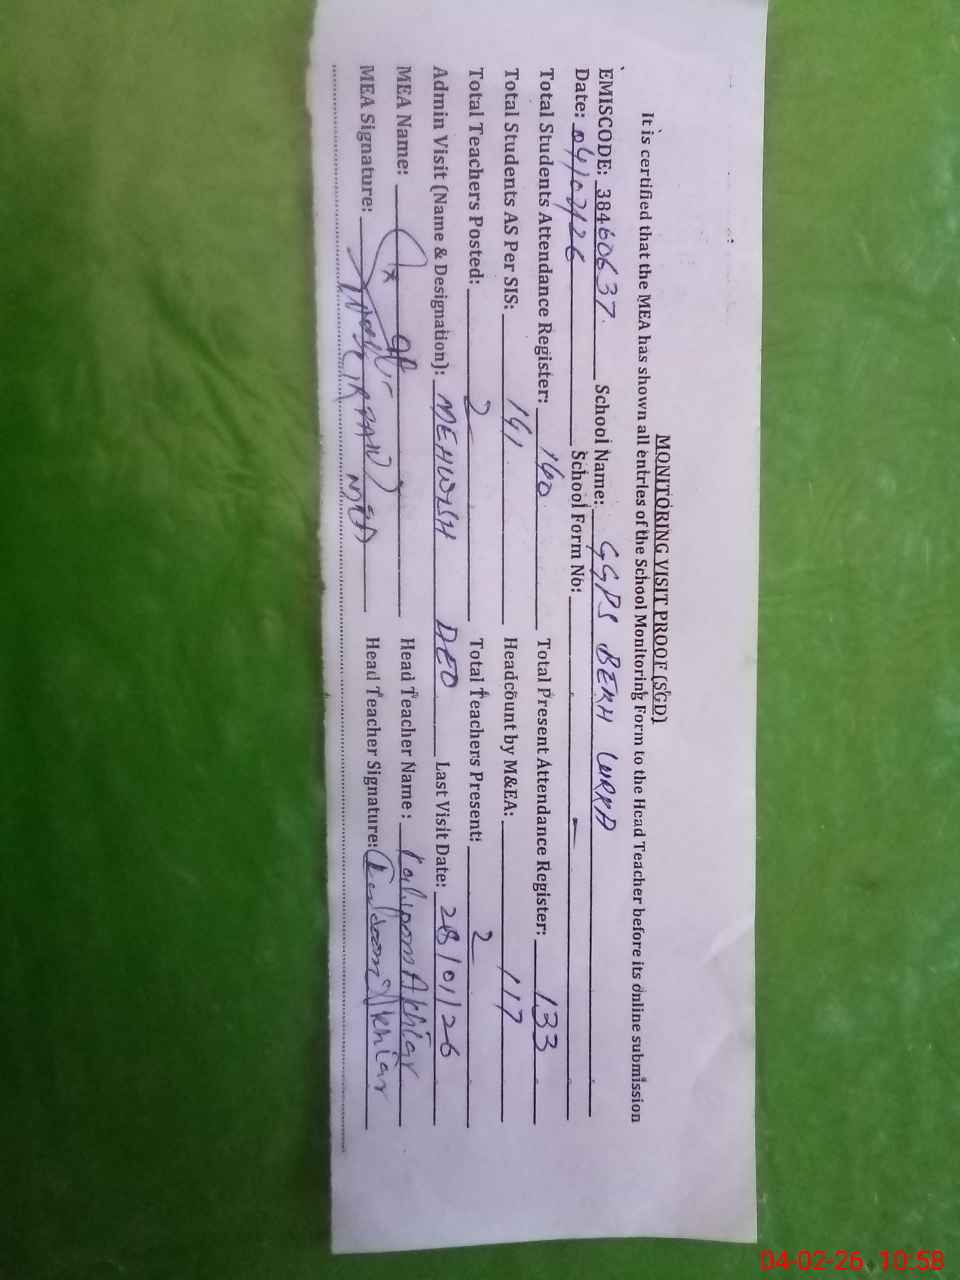 MONITORING VISIT PROOF (SGD)
It is certified that the MEA has shown all entries of the School Monitoring Form to the Head Teacher before its online submission
EMISCODE: 38460637 School Name: GGPS BERH WRRA
Date: 04/02/26 School Form No: –
Total Students Attendance Register: 140 Total Present Attendance Register: 133
Total Students AS Per SIS: 141 Headcount by M&EA: 117
Total Teachers Posted: 2 Total Teachers Present: 2
Admin Visit (Name & Designation): MEHWISH DEO Last Visit Date: 28/01/26
MEA Name: Head Teacher Name: Akhtar
MEA Signature: Head Teacher Signature: Akhtar
04-02-26 10:58